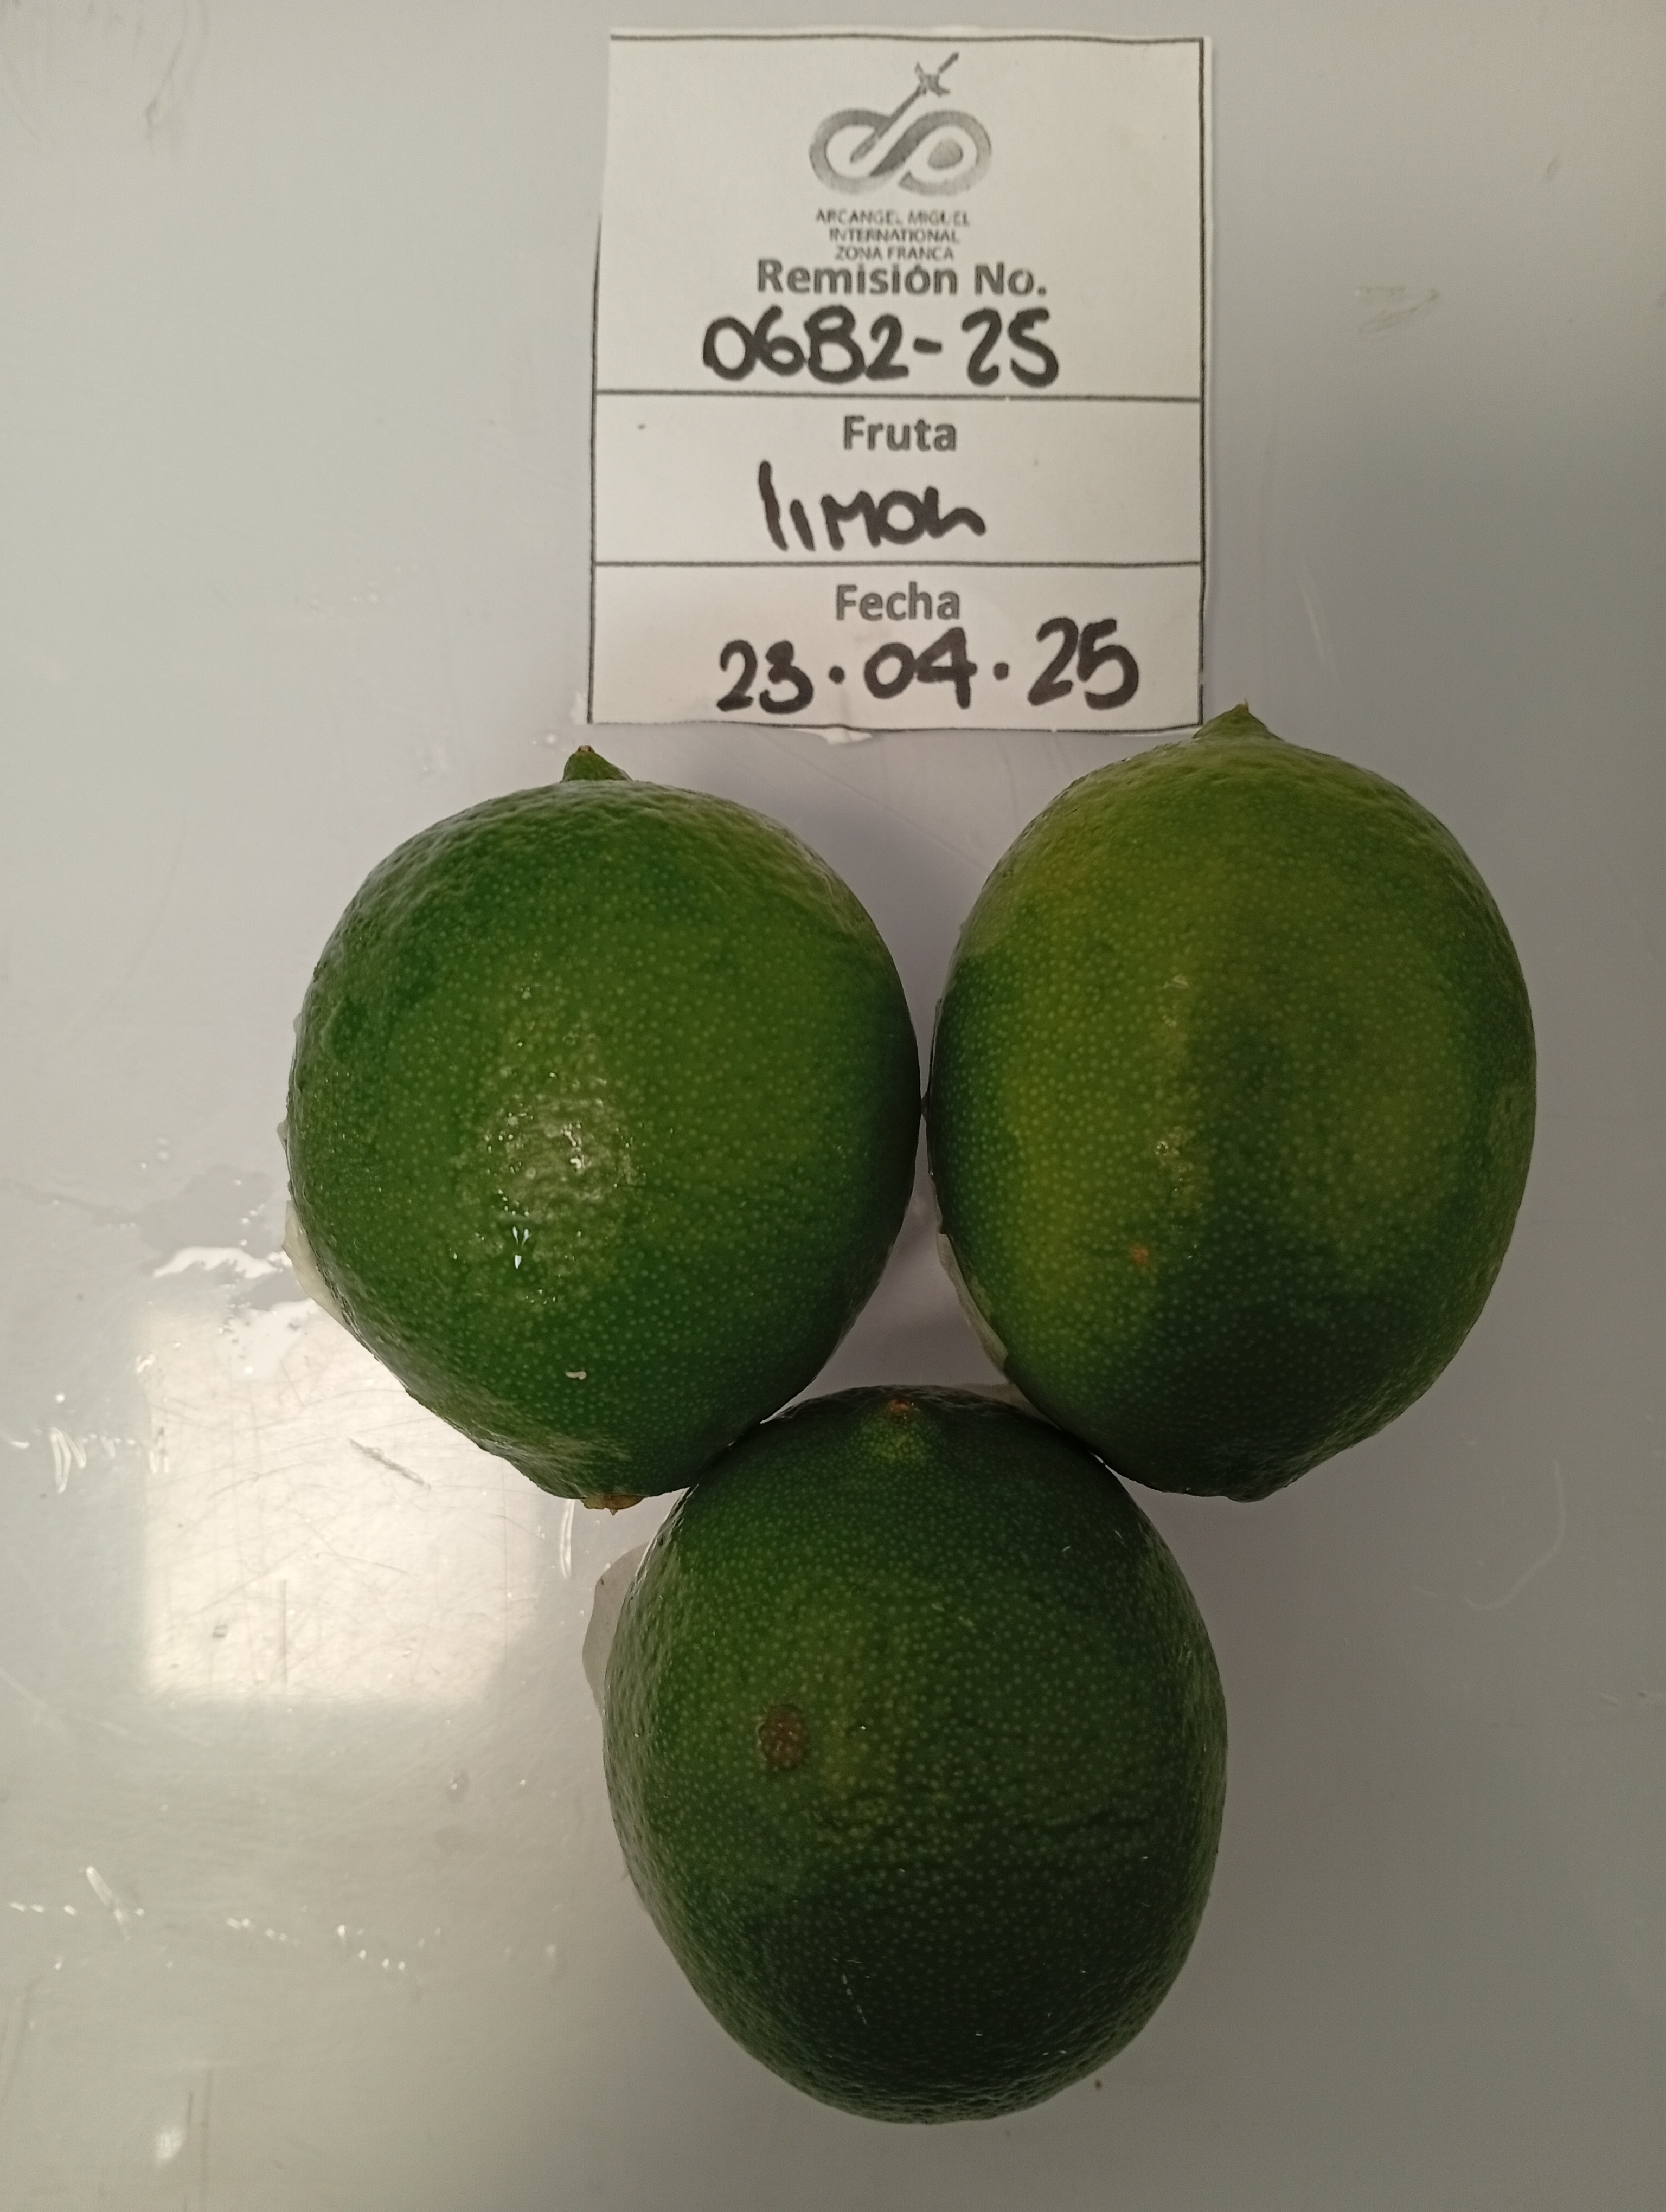 ARCANGEL MIGUEL
INTERNATIONAL
ZONA FRANCA
Remisión No.
0682-25
Fruta
limon
Fecha
23.04.25